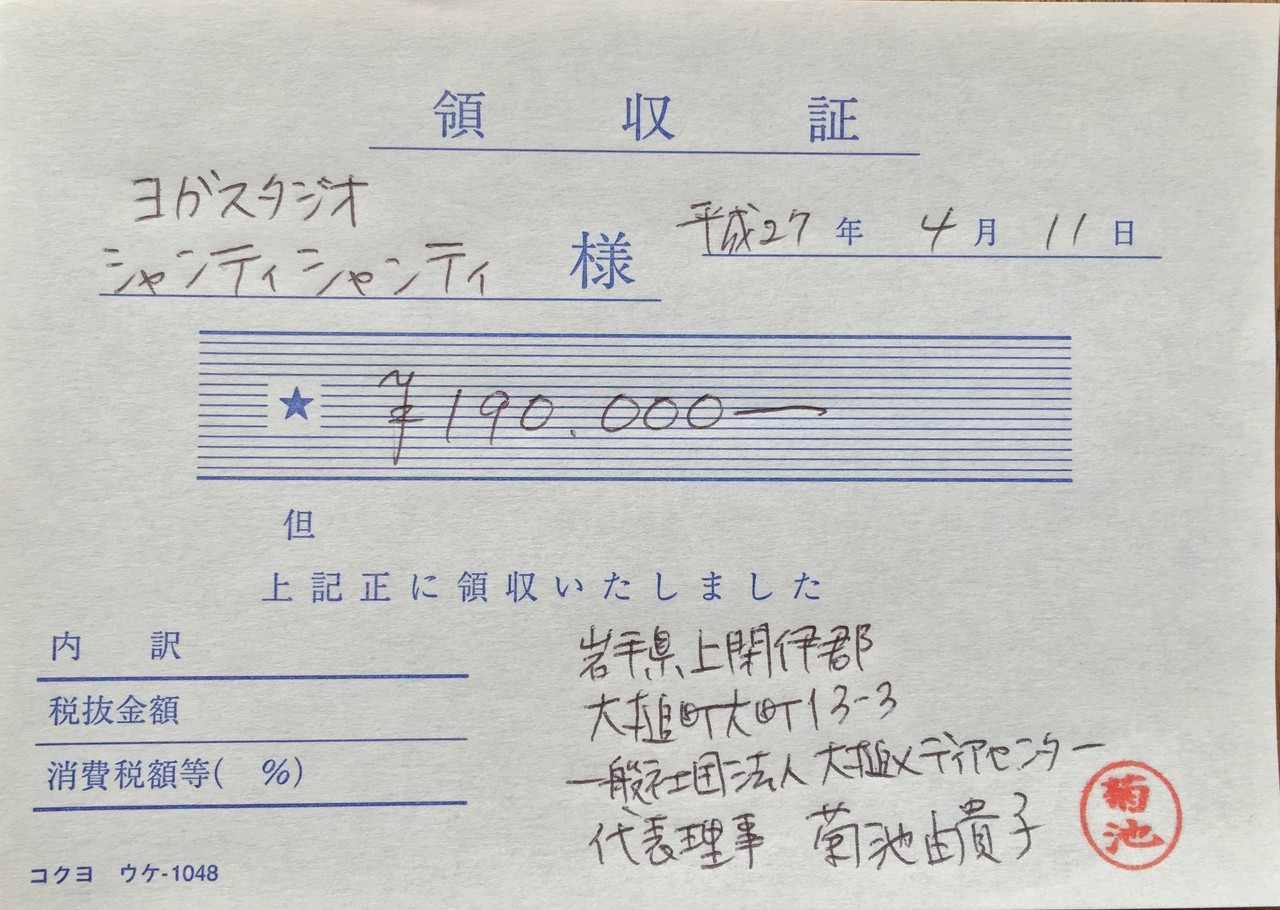 領収証
ヨガスタジオ
シャンティシャンティ 様
平成27年4月11日
★ ¥190.000ー
但
上記正に領収いたしました
内訳
税抜金額
消費税額等( %)
岩手県上閉伊郡
大槌町大町13-3
一般社団法人 大槌メディアセンター
代表理事 菊池由貴子
菊池
コクヨ ウケ-1048